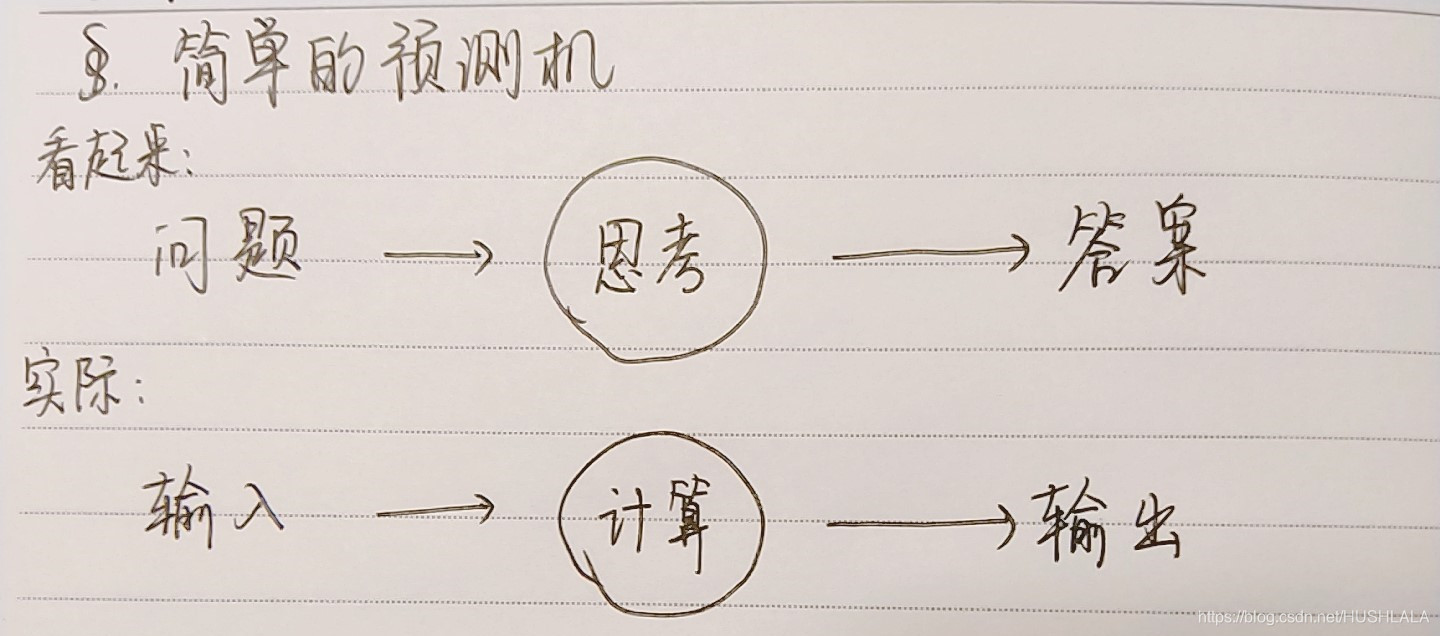 §. 简单的预测机
看起来:
问题 → 思考 → 答案
实际:
输入 → 计算 → 输出
https://blog.csdn.net/HUSHLALA